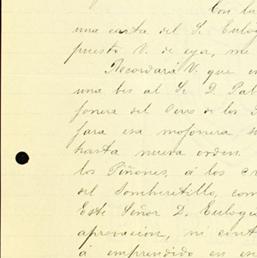 Con la
una carta del Sr. Eulog
puesto V. de eya, me
Recordará V. que en
una bis al Sr. D. Pabl
fonera del Cerro de los
fara esa mofonera, s
hasta nueva orden
los Piñones, á los cr
del Sombreritillo, com
Este Señor D. Eulogi
aprovacion, ni cont
á emprendido en en